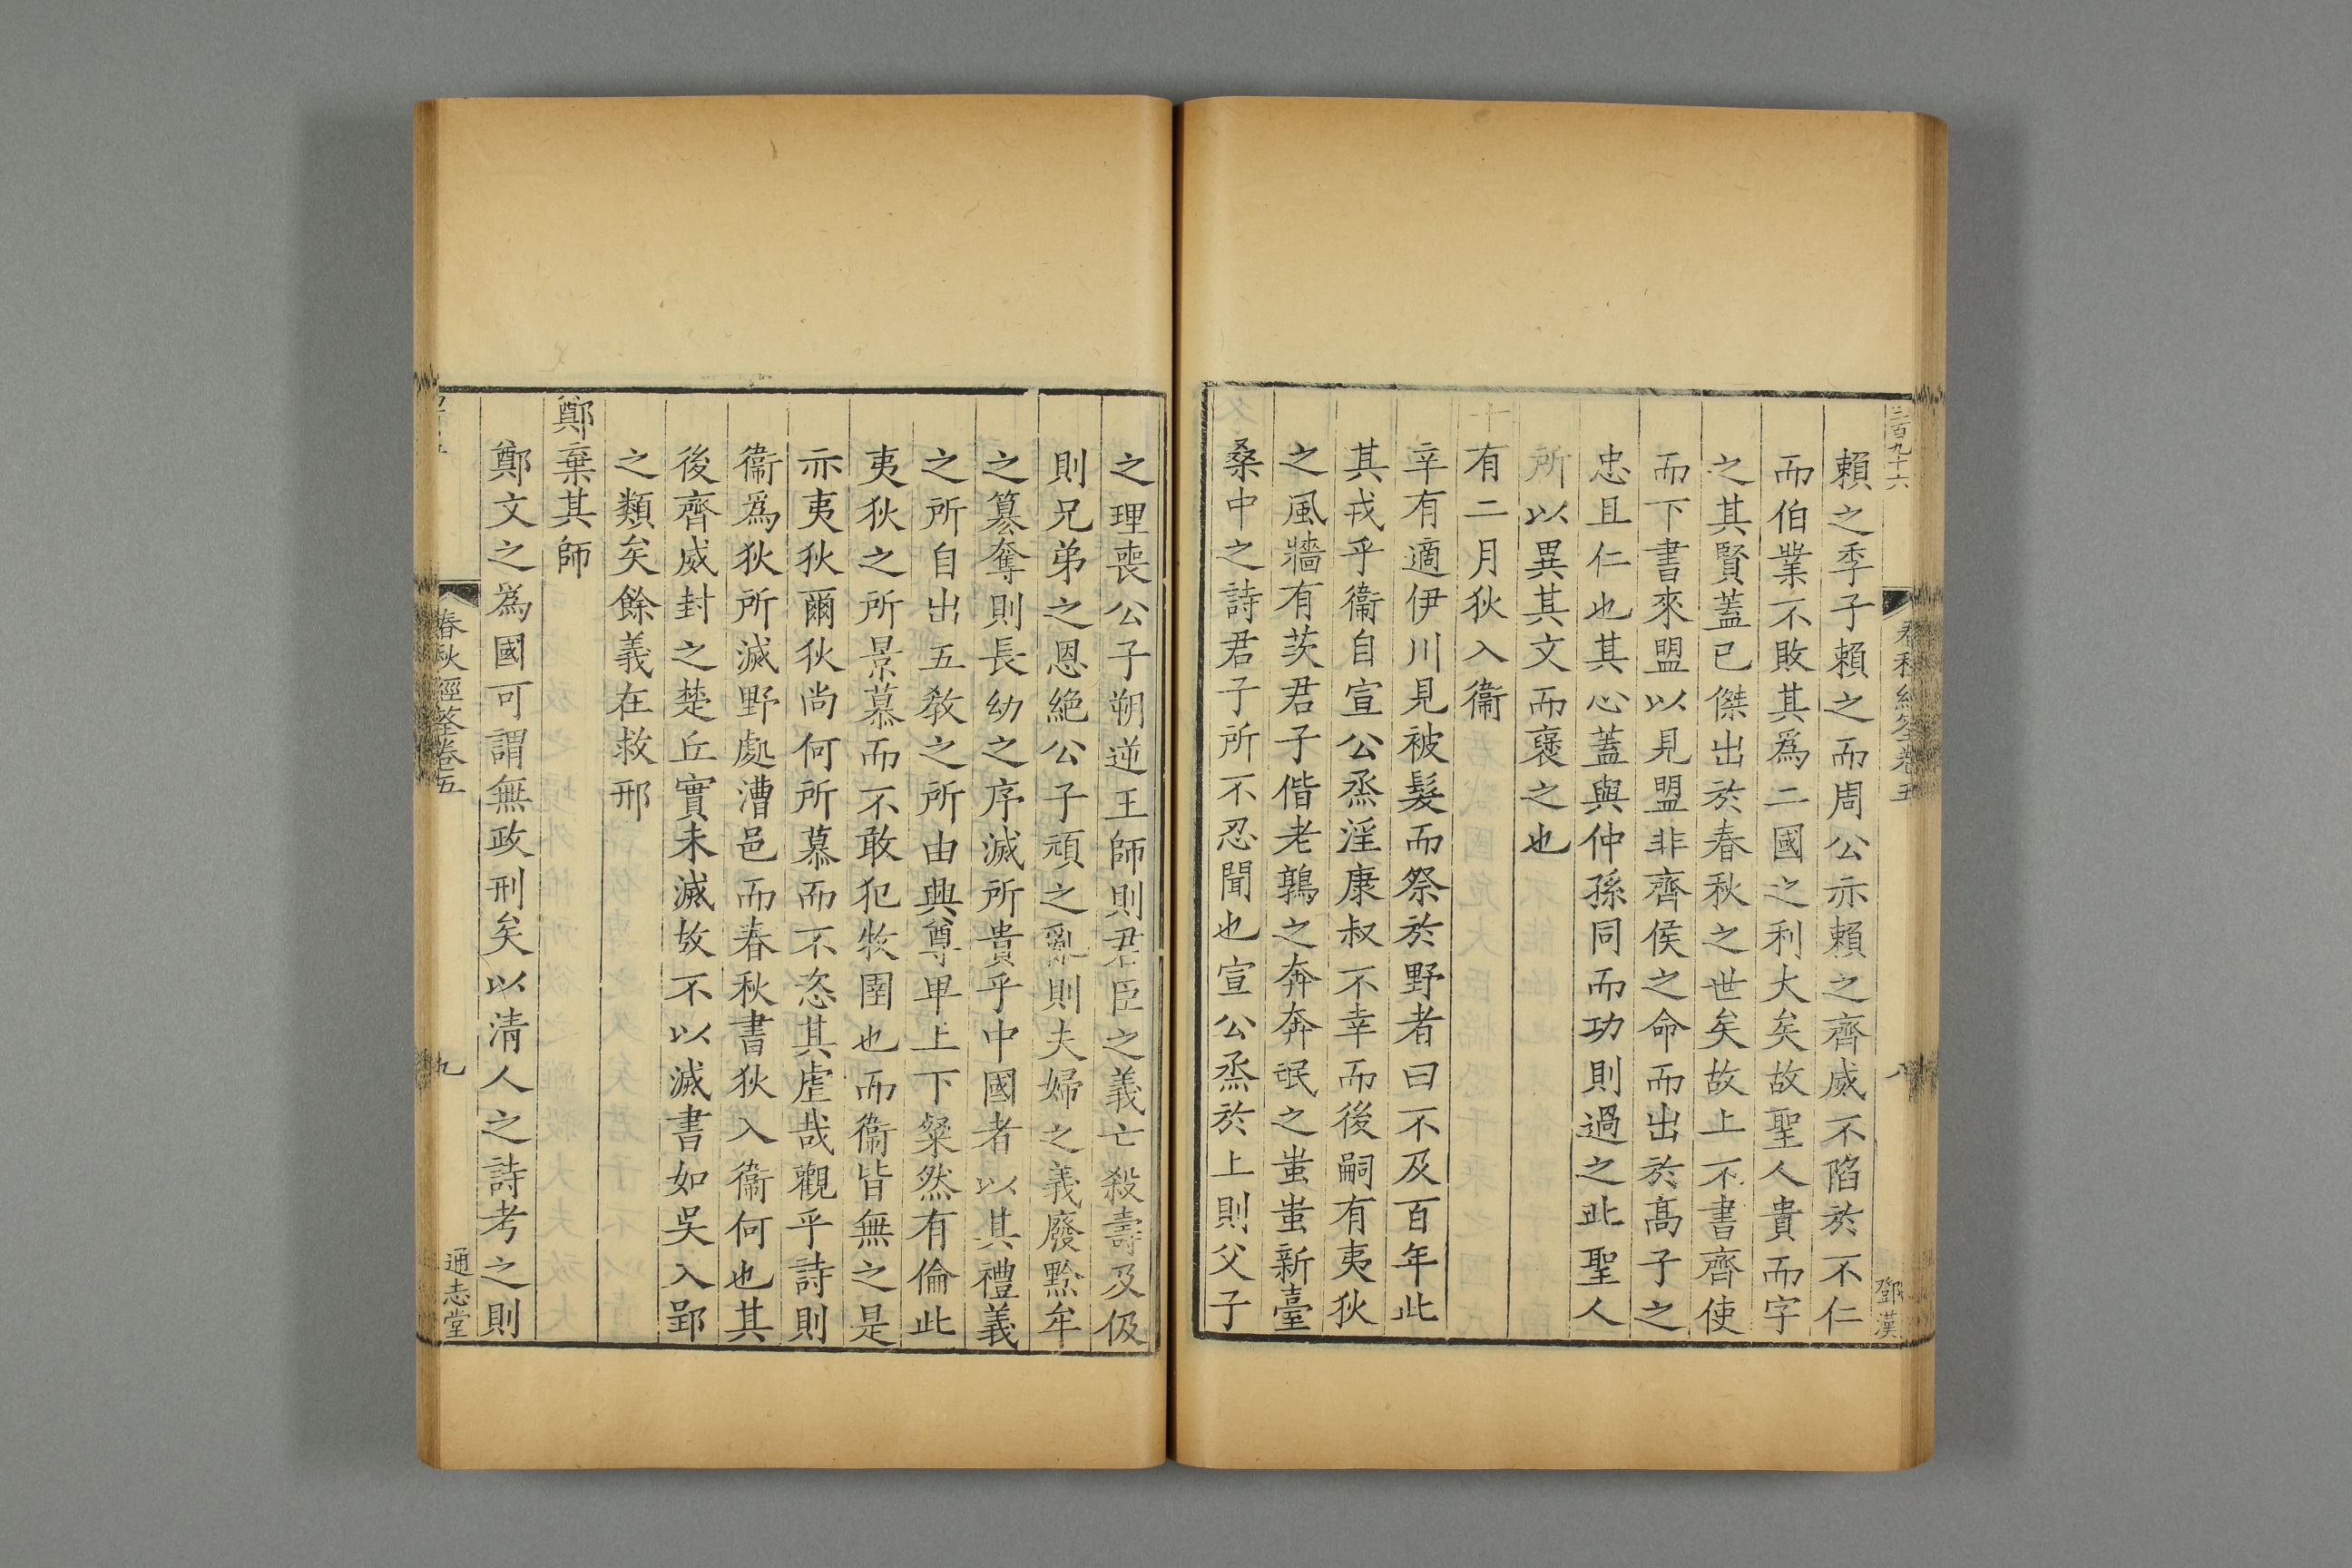 三百九十六
春秋經筌卷五
八
鄧漢
賴之季子賴之而周公亦賴之齊威不陷於不仁
而伯業不敗其爲二國之利大矣故聖人貴而字
之其賢蓋已傑出於春秋之世矣故上不書齊使
而下書來盟以見盟非齊侯之命而出於高子之
忠且仁也其心蓋與仲孫同而功則過之此聖人
所以異其文而襃之也
十有二月狄入衞
辛有適伊川見被髮而祭於野者曰不及百年此
其戎乎衞自宣公烝淫康叔不幸而後嗣有夷狄
之風牆有茨君子偕老鶉之奔奔氓之蚩蚩新臺
桑中之詩君子所不忍聞也宣公烝於上則父子
之理喪公子朔逆王師則君臣之義亡殺壽及伋
則兄弟之恩絶公子頑之亂則夫婦之義廢黔牟
之簒奪則長幼之序滅所貴乎中國者以其禮義
之所自出五教之所由興尊卑上下粲然有倫此
夷狄之所景慕而不敢犯牧圉也而衞皆無之是
亦夷狄爾狄尚何所慕而不恣其虐哉觀乎詩則
衞爲狄所滅野處漕邑而春秋書狄入衞何也其
後齊威封之楚丘實未滅故不以滅書如吳入郢
之類矣餘義在救邢
鄭棄其師
鄭文之爲國可謂無政刑矣以清人之詩考之則
春秋經筌卷五
九
通志堂